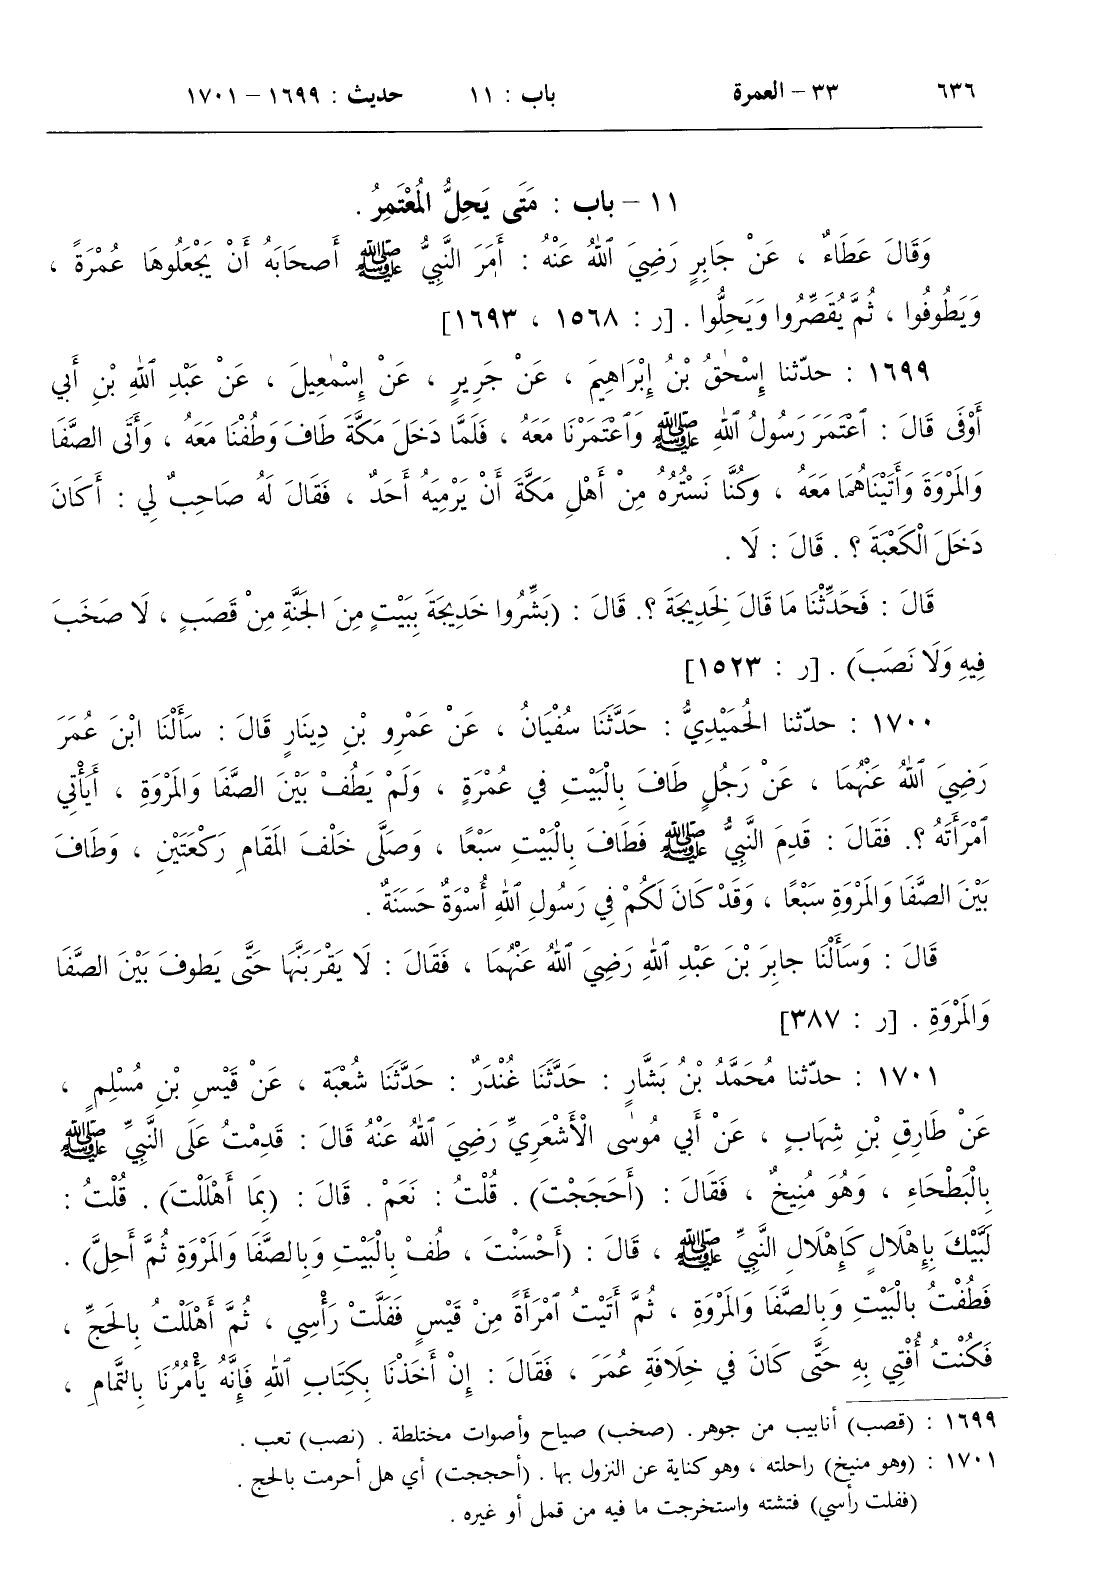 ٦٣٦ ٣٣ – العمرة باب : ١١ حديث : ١٦٩٩ – ١٧٠١
١١ – باب : مَتَى يَحِلُّ الْمُعْتَمِرُ .
وَقَالَ عَطَاءٌ ، عَنْ جَابِرٍ رَضِيَ ٱللهُ عَنْهُ : أَمَرَ النَّبِيُّ ﷺ أَصحَابَهُ أَنْ يَجْعَلُوهَا عُمْرَةً ،
وَيَطُوفُوا ، ثُمَّ يُقَصِّرُوا وَيَحِلُّوا . [ر : ١٥٦٨ ، ١٦٩٣]
١٦٩٩ : حدّثنا إِسْحٰقُ بْنُ إِبْرَاهِيمَ ، عَنْ جَرِيرٍ ، عَنْ إِسْمٰعِيلَ ، عَنْ عَبْدِ ٱللهِ بْنِ أَبِي
أَوْفَى قَالَ : ٱعْتَمَرَ رَسُولُ ٱللهِ ﷺ وَٱعْتَمَرْنَا مَعَهُ ، فَلَمَّا دَخَلَ مَكَّةَ طَافَ وَطُفْنَا مَعَهُ ، وَأَتَى الصَّفَا
وَالمَرْوَةَ وَأَتَيْنَاهُمَا مَعَهُ ، وَكُنَّا نَسْتُرُهُ مِنْ أَهْلِ مَكَّةَ أَنْ يَرْمِيَهُ أَحَدٌ ، فَقَالَ لَهُ صَاحِبٌ لِي : أَكَانَ
دَخَلَ الْكَعْبَةَ ؟ . قَالَ : لَا .
قَالَ : فَحَدِّثْنَا مَا قَالَ لِخَدِيجَةَ ؟. قَالَ : (بَشِّرُوا خَدِيجَةَ بِبَيْتٍ مِنَ الجَنَّةِ مِنْ قَصَبٍ ، لَا صَخَبَ
فِيهِ وَلَا نَصَبَ) . [ر : ١٥٢٣]
١٧٠٠ : حدّثنا الحُمَيْدِيُّ : حَدَّثَنَا سُفْيَانُ ، عَنْ عَمْرِو بْنِ دِينَارٍ قَالَ : سَأَلْنَا ابْنَ عُمَرَ
رَضِيَ ٱللهُ عَنْهُمَا ، عَنْ رَجُلٍ طَافَ بِالْبَيْتِ فِي عُمْرَةٍ ، وَلَمْ يَطُفْ بَيْنَ الصَّفَا وَالمَرْوَةِ ، أَيَأْتِي
ٱمْرَأَتَهُ ؟. فَقَالَ : قَدِمَ النَّبِيُّ ﷺ فَطَافَ بِالْبَيْتِ سَبْعًا ، وَصَلَّى خَلْفَ المَقَامِ رَكْعَتَيْنِ ، وَطَافَ
بَيْنَ الصَّفَا وَالمَرْوَةِ سَبْعًا ، وَقَدْ كَانَ لَكُمْ فِي رَسُولِ ٱللهِ أُسْوَةٌ حَسَنَةٌ .
قَالَ : وَسَأَلْنَا جابِرَ بْنَ عَبْدِ ٱللهِ رَضِيَ ٱللهُ عَنْهُمَا ، فَقَالَ : لَا يَقْرَبَنَّهَا حَتَّى يَطوفَ بَيْنَ الصَّفَا
وَالمَرْوَةِ . [ر : ٣٨٧]
١٧٠١ : حدّثنا مُحَمَّدُ بْنُ بَشَّارٍ : حَدَّثَنَا غُنْدَرٌ : حَدَّثَنَا شُعْبَة ، عَنْ قَيْسِ بْنِ مُسْلِمٍ ،
عَنْ طَارِقِ بْنِ شِهَابٍ ، عَنْ أَبِي مُوسٰى الْأَشْعَرِيِّ رَضِيَ ٱللهُ عَنْهُ قَالَ : قَدِمْتُ عَلَى النَّبِيِّ ﷺ
بِالْبَطْحَاءِ ، وَهُوَ مُنِيخٌ ، فَقَالَ : (أَحَجَجْتَ) . قُلْتُ : نَعَمْ . قَالَ : (بِمَا أَهْلَلْتَ) . قُلْتُ :
لَبَّيْكَ بِإِهْلَالٍ كَإِهْلَالِ النَّبِيِّ ﷺ ، قَالَ : (أَحْسَنْتَ ، طُفْ بِالْبَيْتِ وَبِالصَّفَا وَالمَرْوَةِ ثُمَّ أَحِلَّ) .
فَطُفْتُ بِالْبَيْتِ وَبِالصَّفَا وَالمَرْوَةِ ، ثُمَّ أَتَيْتُ ٱمْرَأَةً مِنْ قَيْسٍ فَفَلَتْ رَأْسِي ، ثُمَّ أَهْلَلْتُ بِالحَجِّ ،
فَكُنْتُ أُفْتِي بِهِ حَتَّى كَانَ فِي خِلَافَةِ عُمَرَ ، فَقَالَ : إِنْ أَخَذْنَا بِكِتَابِ ٱللهِ فَإِنَّهُ يَأْمُرُنَا بِالتَّمَامِ ،
١٦٩٩ : (قصب) أنابيب من جوهر . (صخب) صياح وأصوات مختلطة . (نصب) تعب .
١٧٠١ : (وهو منيخ) راحلته ، وهو كناية عن النزول بها . (أحججت) أي هل أحرمت بالحج .
(ففلت رأسي) فتشته واستخرجت ما فيه من قمل أو غيره .